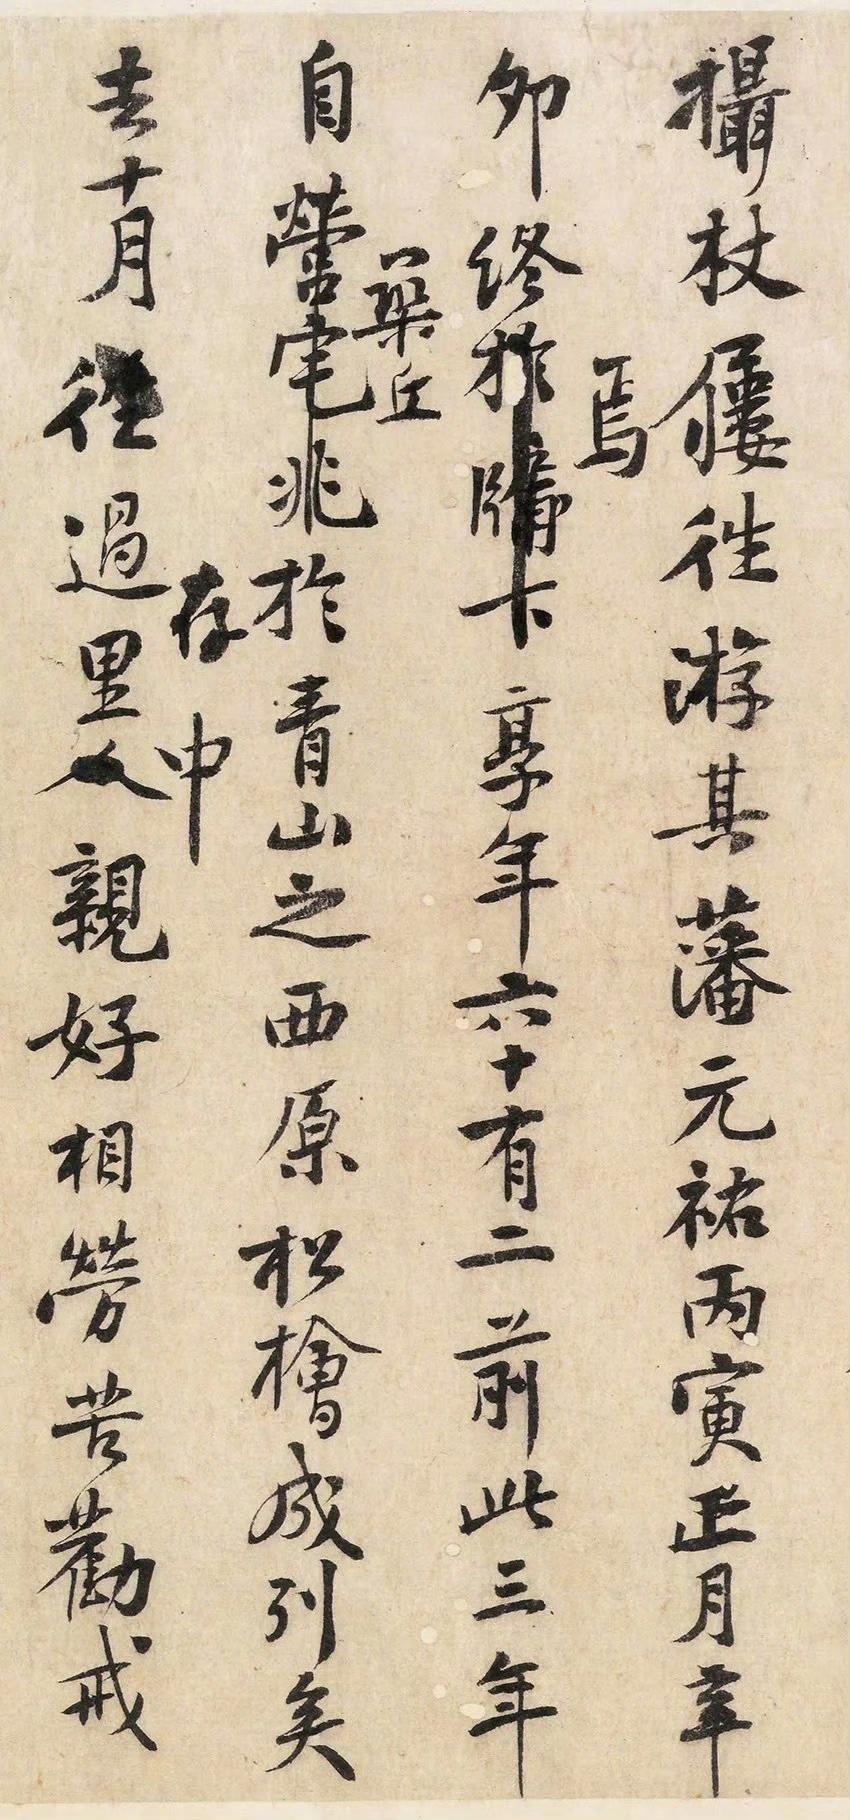 攝杖屨往游其藩元祐丙寅正月辛
焉
卯終於牖下享年六十有二前此三年
築丘
自營宅兆於青山之西原松檜成列矣
存中
去十月往過里人親好相勞苦勸戒